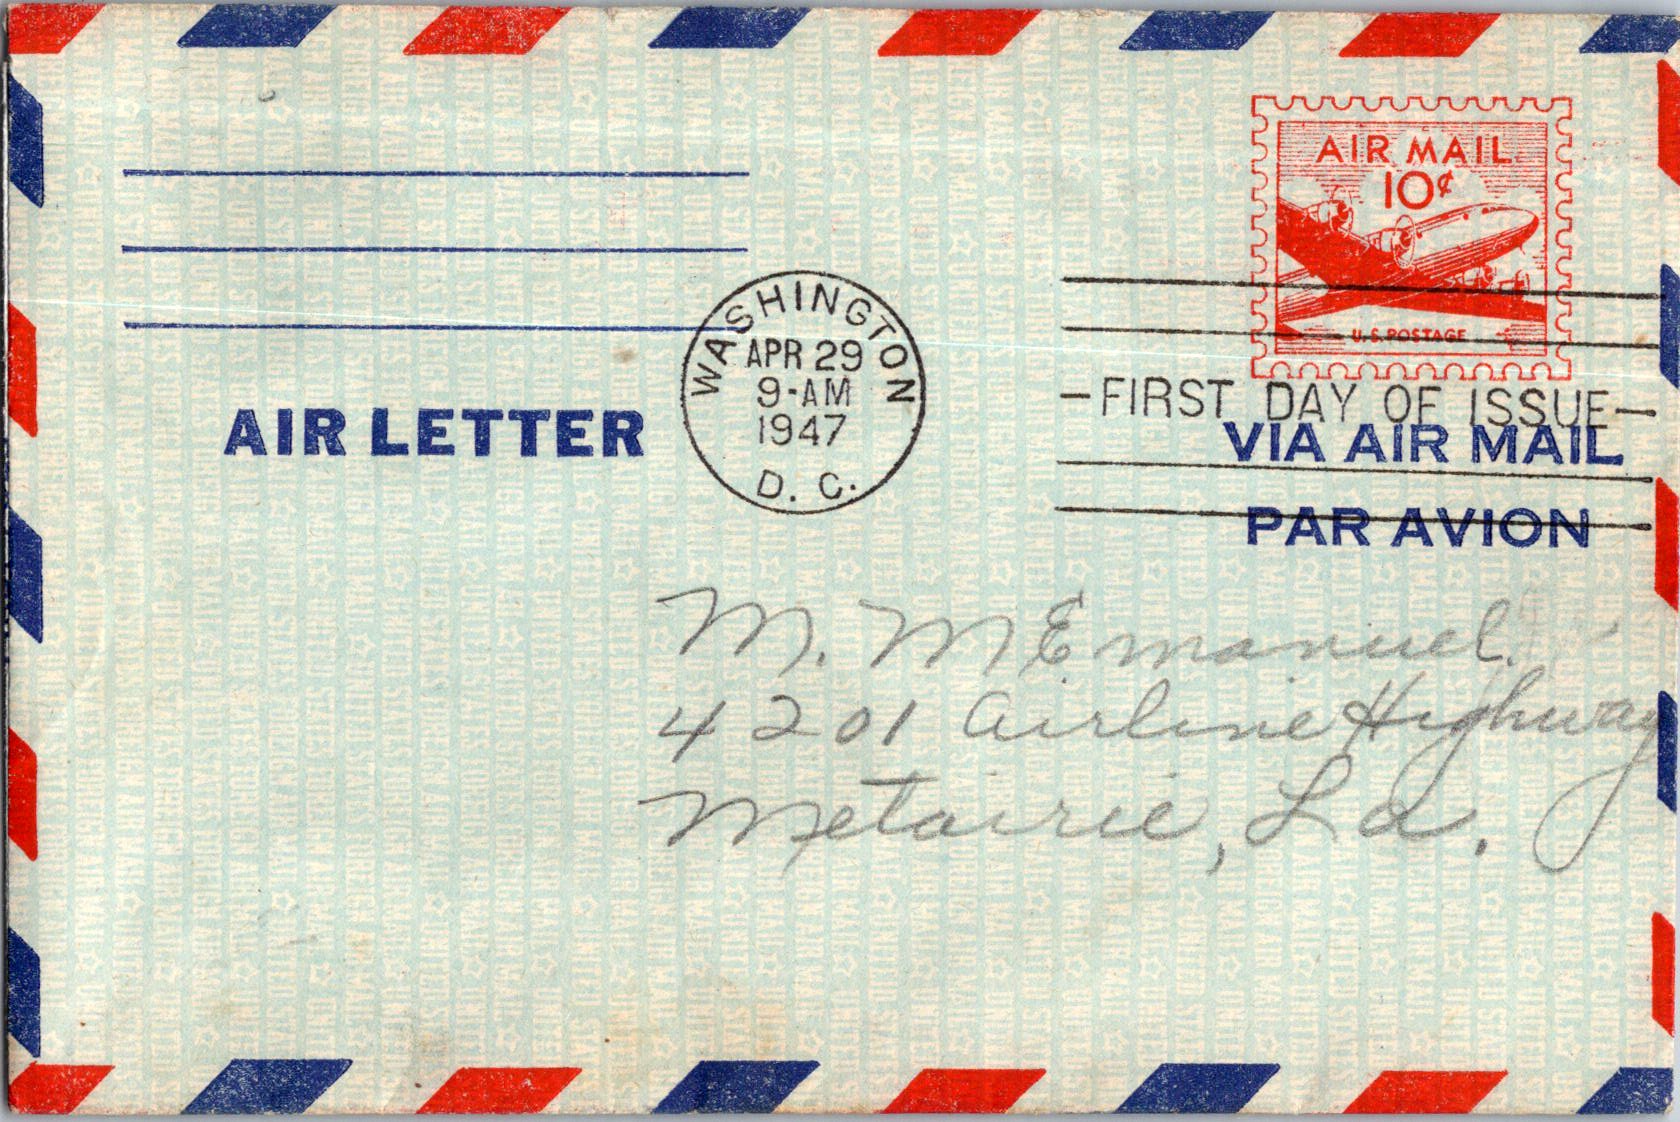 AIR MAIL
10¢
U.S. POSTAGE
WASHINGTON
APR 29
9-AM
1947
D. C.
FIRST DAY OF ISSUE
AIR LETTER
VIA AIR MAIL
PAR AVION
M. M Emanuel.
4201 Airline Highway
Metairie, La.